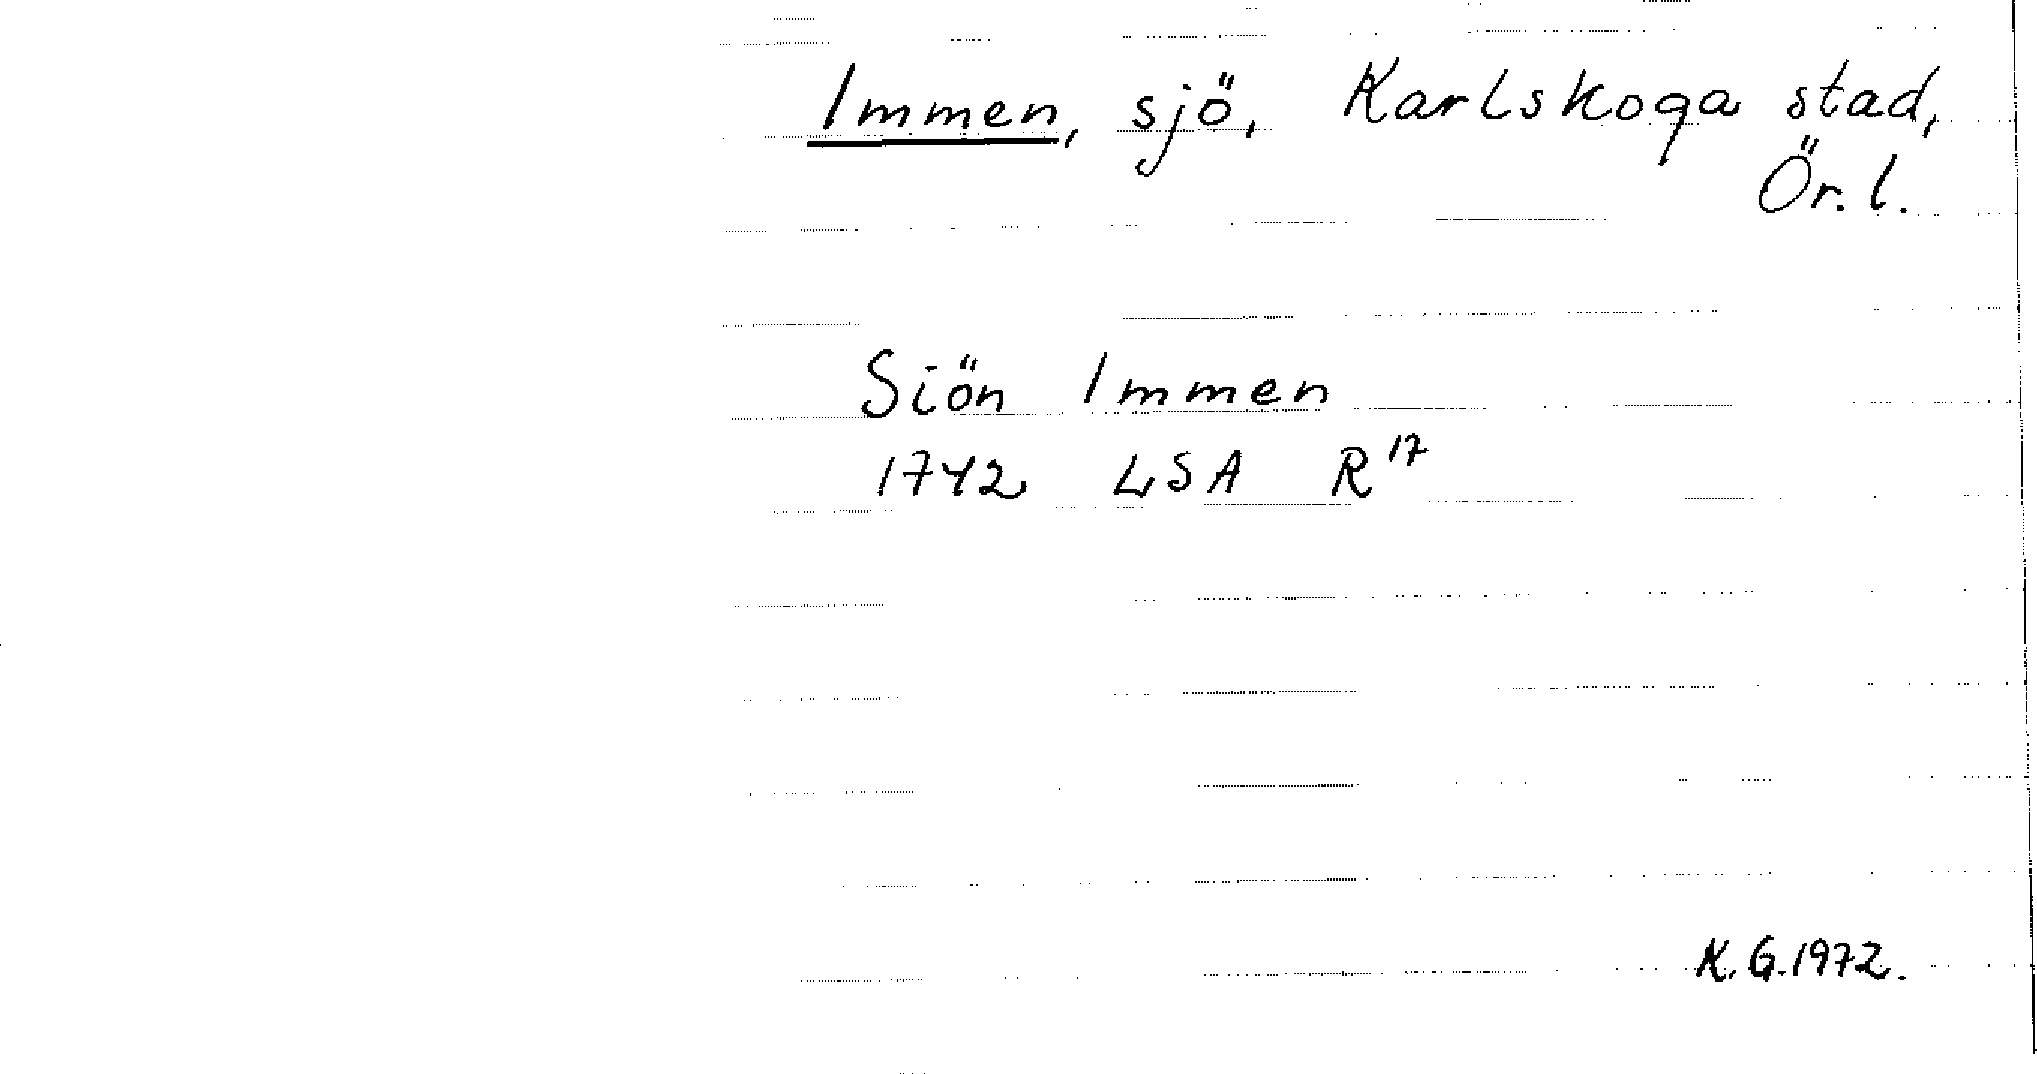 Immen, sjö, Karlskoga stad,
Ör. l.
Siön Immen
1742 LSA R 17
K. G. 1972.